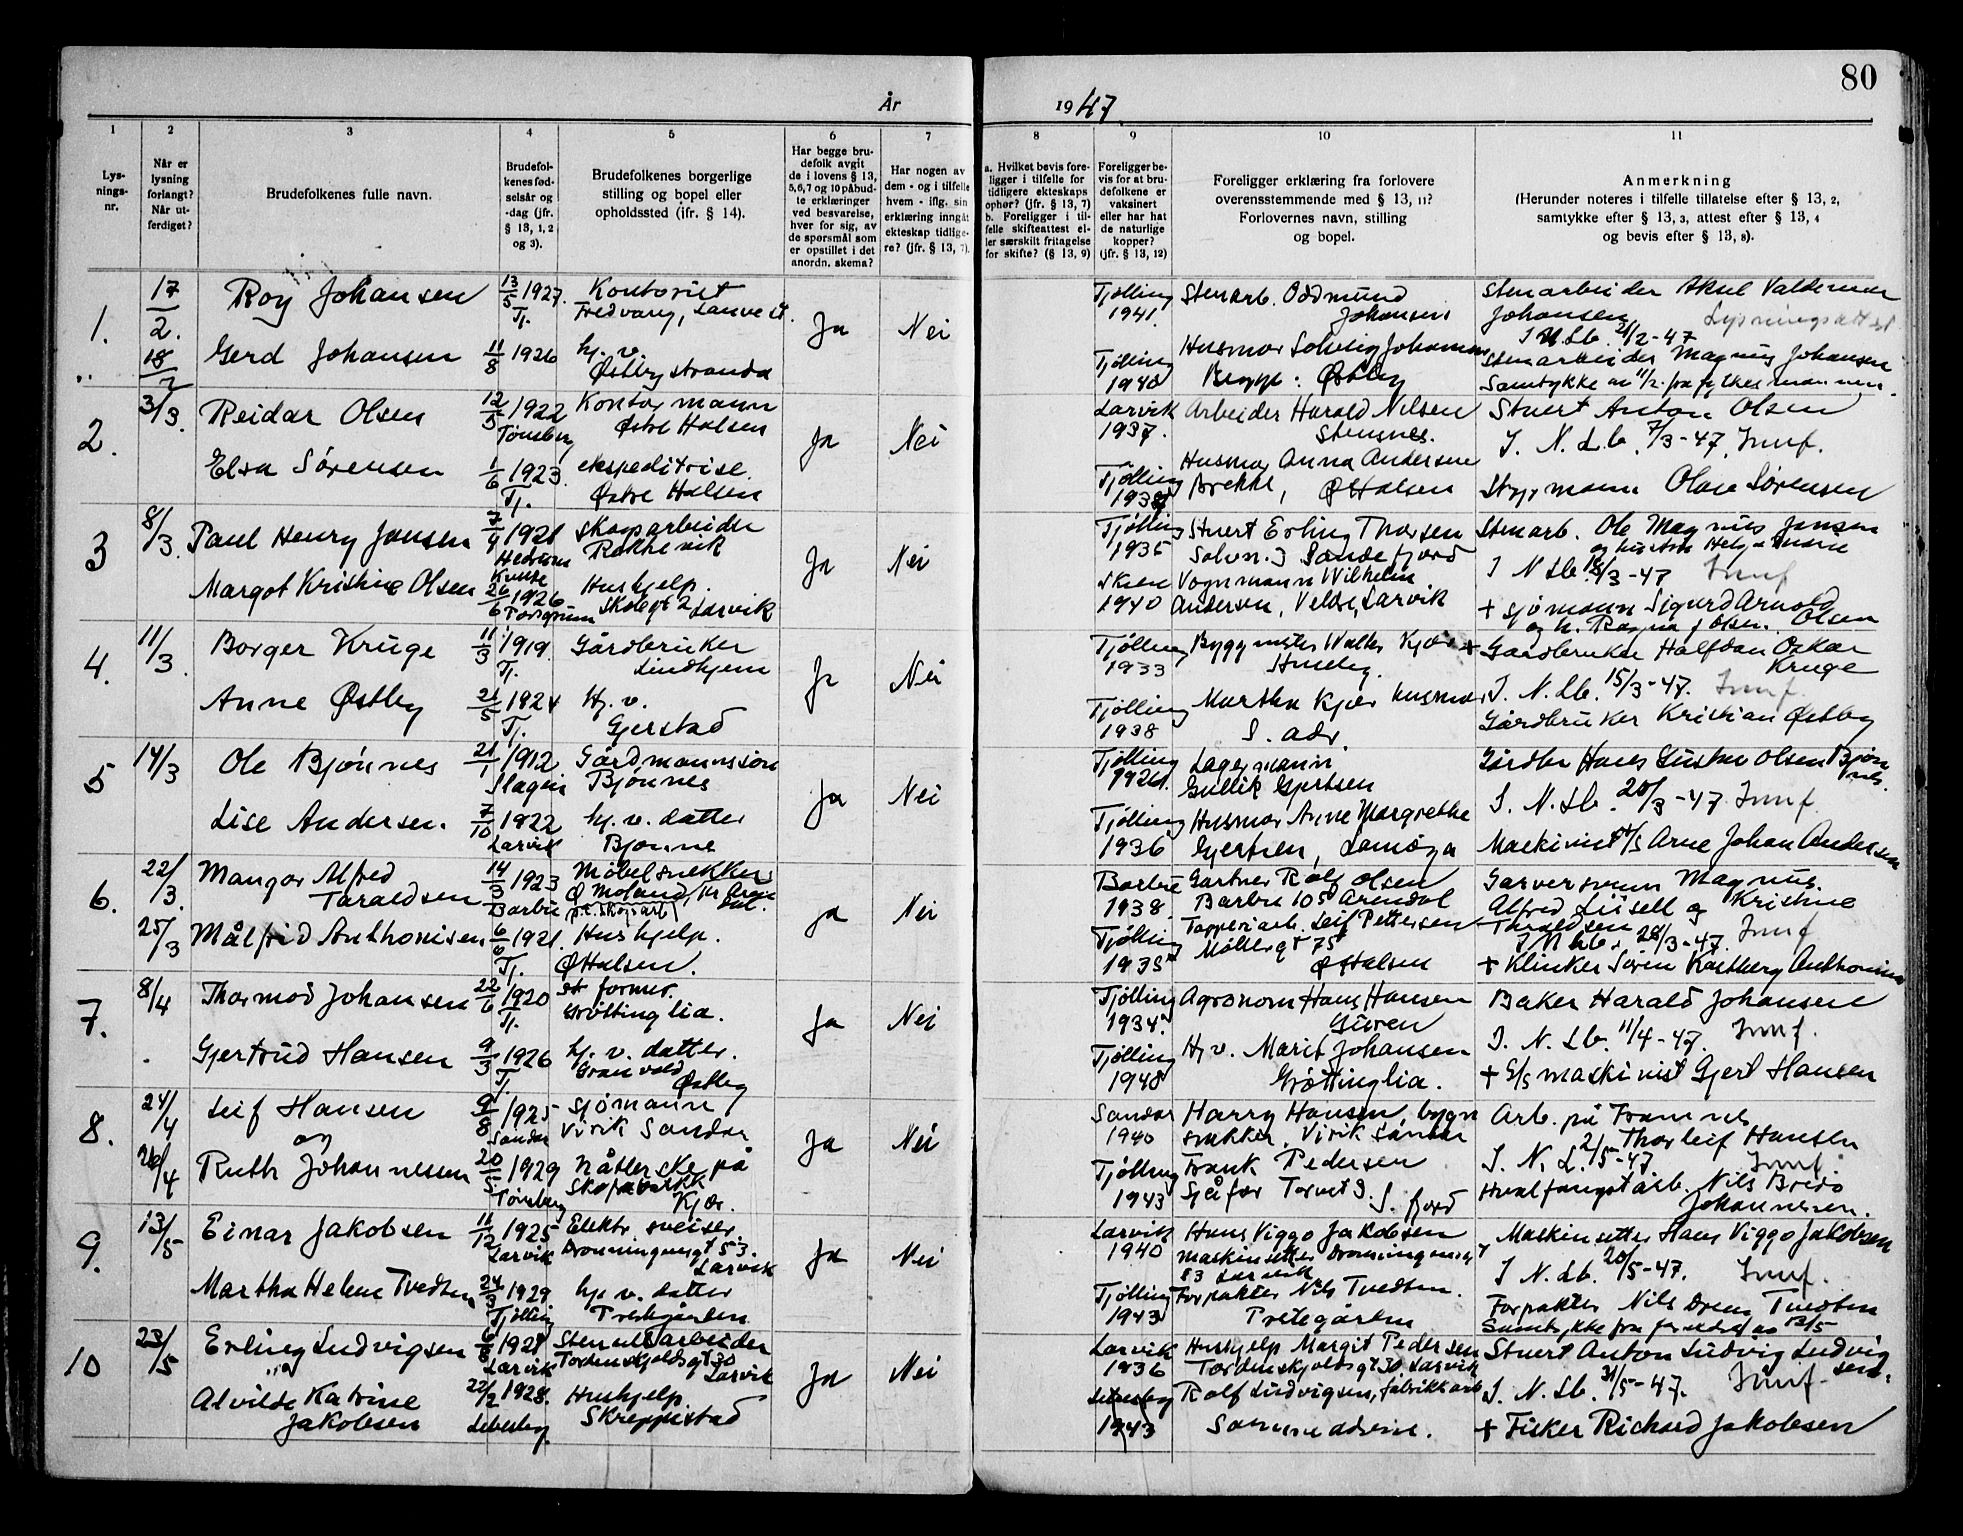 80
År 1947
1 2 3 4 5 6 7 8 9 10 11
Lys-
nings-
nr.
Når er
lysning
forlangt?
Når ut-
ferdiget?
Brudefolkenes fulle navn.
Brudefol-
kenes fød-
selsår og
-dag (jfr.
§ 13, 1, 2
og 3).
Brudefolkenes borgerlige
stilling og bopel eller
opholdssted (jfr. § 14).
Har begge bru-
defolk avgit
de i lovens § 13,
5, 6, 7 og 10 påbud-
te erklæringer
ved besvarelse,
hver for sig, av
de spørsmål som
er opstillet i det
anordn. skema?
Har nogen av
dem - og i tilfelle
hvem - iflg. sin
erklæring inngåt
ekteskap tidlige-
re? (jfr. § 13, 7).
a. Hvilket bevis fore-
ligger i tilfelle for
tidligere ekteskaps
ophør? (jfr. § 13, 7)
b. Foreligger i til-
felle skifteattest el-
ler særskilt fritagelse
for skifte? (§ 13, 9)
Foreligger be-
vis for at bru-
defolkene er
vaksinert
eller har hat
de naturlige
kopper?
(jfr. § 13, 12)
Foreligger erklæring fra forlovere
overensstemmende med § 13, 11?
Forlovernes navn, stilling
og bopel.
Anmerkning
(Herunder noteres i tilfelle tillatelse efter § 13, 2,
samtykke efter § 13, 3, attest efter § 13, 4
og bevis efter § 13, 8).
1. 17/2. 18/2
Roy Johansen 13/5 1927. Tj. Kontorist
Fredvang, Lauve st.
Ja Nei
Tjølling 1941. Stenarb. Oddmund
Johansen
Stenarbeider Aksel Valdemar
Johansen Lysningsattest
I N. Lb. 21/2-47
Gerd Johansen 11/8 1926 hj. v.
Østbystranda
Tjølling 1940 Husmor Solveig Johansen
Begge: Østby
Stenarbeider Magnus Johansen
Samtykke av 11/2 fra fylkesmannen.
2. 3/3.
Reidar Olsen 12/5 1922 Tønsberg Kontormann
Østre Halsen
Ja Nei
Larvik 1937. Arbeider Harald Nilsen
Stensnes.
Stuert Anton Olsen
I. N. Lb. 7/3-47. Innf.
Elsa Sørensen 1/6 1923. Tj. ekspeditrise.
Østre Halsen
Tjølling 1938 Husmor Anna Andersen
Brekke, Ø Halsen
Styrmann Olav Sørensen
3 8/3.
Paul Henry Jansen 1921 Hedrum skogsarbeider
Rakkevik
Ja Nei
Tjølling 1935 Stuert Erling Thorsen
Solvn. 3 Sandefjord
Stenarb. Ole Magnus Jansen
og hustru Helga Marie
I N Lb. 18/3-47 Innf
Margot Kristine Olsen 26/6 1926 Porsgrunn Hushjelp.
Skolegt 2 Larvik
Skien 1940 Vognmann Wilhelm
Andersen, Velde, Larvik
+ sjømann Sigurd Arnold
og h. Ragna f Olsen. Olsen
4. 11/3.
Borger Kruge 11/3 1919. Tj. Gårdbruker
Lindhjem
Ja Nei
Tjølling 1933 Byggmester Walter Kjær
Huseby.
+ Gårdbruker Halfdan Oskar
Kruge
I. N. Lb. 15/3-47. Innf.
Anne Østby 21/5 1924 Tj. Hj. v.
Gjerstad
Tjølling 1938 Martha Kjær husmor
S. adr.
Gårdbruker Kristian Østby
5 14/3
Ole Bjønnes 21/1 1912 Slagen Gårdmannssøn
Bjønnes
Ja Nei
Tjølling 1926. Lagermann
Gullik Gjertsen
Gårdbr Hans Gustav Olsen Bjøn
nes.
I. N. Lb. 20/3-47. Innf.
Lise Andersen. 7/10 1922 Larvik hj. v. datter
Bjønnes
Tjølling 1936 Husmor Anne Margrethe
Gjertsen, Lamøya
Maskinist Arne Johan Andersen
6. 22/3. 25/3
Mangor Alfred
Taraldsen 14/3 1923 Barbu Møbelsnekker
Ø Moland, pr Aren
dal.
p.t. skogsarb
Ja Nei
Barbu 1938. Gartner Rolf Olsen
Barbu 105 Arendal
Garversvenn Magnus
Alfred Liisell og Kristine
Taraldsen
I N Lb. 28/3-47. Innf
Målfrid Anthonisen 6/6 1921. Tj. Hushjelp.
Ø Halsen.
Tjølling 1935 Tapperiarb. Leif Pettersen
Møllergt 75
Ø Halsen
+ Klinker Søren Kastberg Anthonisen
7. 8/4
Thormod Johansen 22/6 1920 Tj. st former.
Grøttinglia.
Ja Nei
Tjølling 1934. Agronom Hans Hansen
Guren
Baker Harald Johansen
I. N. Lb. 11/4-47. Innf.
Gjertrud Hansen 9/3 1926 Tj. hj. v. datter.
Granvold
Østby
Tjølling 1948 Hj v. Marit Johansen
Grøttinglia.
+ S/S maskinist Gjert Hansen
8. 24/4 26/4
Leif Hansen
og 9/8 1925 Sandar sjømann
Virik Sandar
Ja Nei
Sandar 1940 Harry Hansen, bygn
snekker, Virik Sandar
Arb. på Framnes
Thorleif Hansen
I. N. L. 2/5-47 Innf.
Ruth Johannesen 20/5 1929 Tønsberg Nåtlerske på
Skofabrikk
Kjær.
Tjølling 1943 Frank Pedersen
Sjåfør Torvet 3. S. fjord
Hvalfangstarb. Nils Bredo
Johannesen.
9. 13/5
Einar Jakobsen 11/12 1925 Larvik Elektr. sveiser.
Dronningensgt 53.
Larvik
Ja Nei
Larvik 1940 Hans Viggo Jakobsen
maskinsetter Dronningensgt
53 Larvik
Maskinsetter Hans Viggo Jakobsen
I N. Lb. 20/5-47. Innf.
Martha Helene Tvedten 24/3 1929. Tjølling hj. v. datter
Prestegården
Tjølling 1943 Forpakter Nils Tvedten.
Prestegården
Forpakter Nils Drem Tvedten
Samtykke fra foreldre av 13/5
10 23/5
Erling Ludvigsen
og 6/8 1921 Larvik Stenarbeider
Tordenskjoldsgt 30
Larvik
Ja Nei
Larvik 1936 Hushjelp Margit Pedersen
Tordenskjoldsgt 30 Larvik
Stuert Anton Ludvig Ludvig
sen.
I. N. Lb. 31/5-47. Innf.
Alvilde Katrine
Jakobsen 22/2 1928. Hushjelp
Skreppestad
1943 Rolf Ludvigsen, fabrikkarb
Samme adresse.
+ Fisker Richard Jakobsen